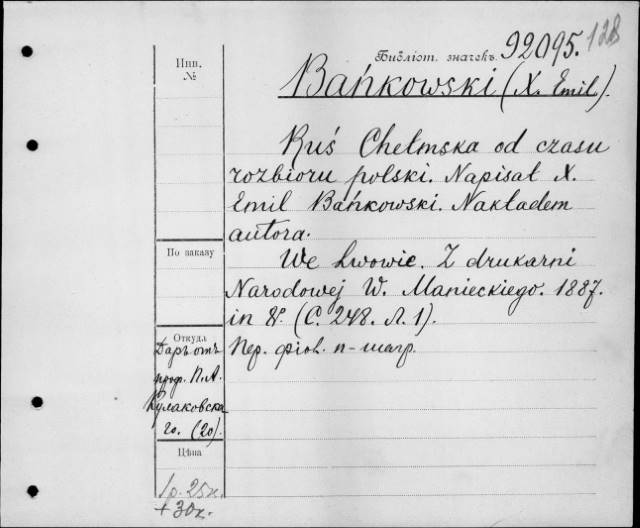 Библіот. значекъ. 92095. 128
Инв.
№
Bańkowski (X. Emil).
Ruś Chełmska od czasu
rozbioru polski. Napisał X.
Emil Bańkowski. Nakładem
autora.
По заказу
We Lwowie. Z drukarni
Narodowej W. Manieckiego. 1887.
in 8º. (С. 248. Л. 1).
Откуда
Пер. фіол. п-шагр.
Даръ отъ
проф. П. А.
Кулаковска
го. (20)
Цѣна
1р. 25к.
+ 30к.